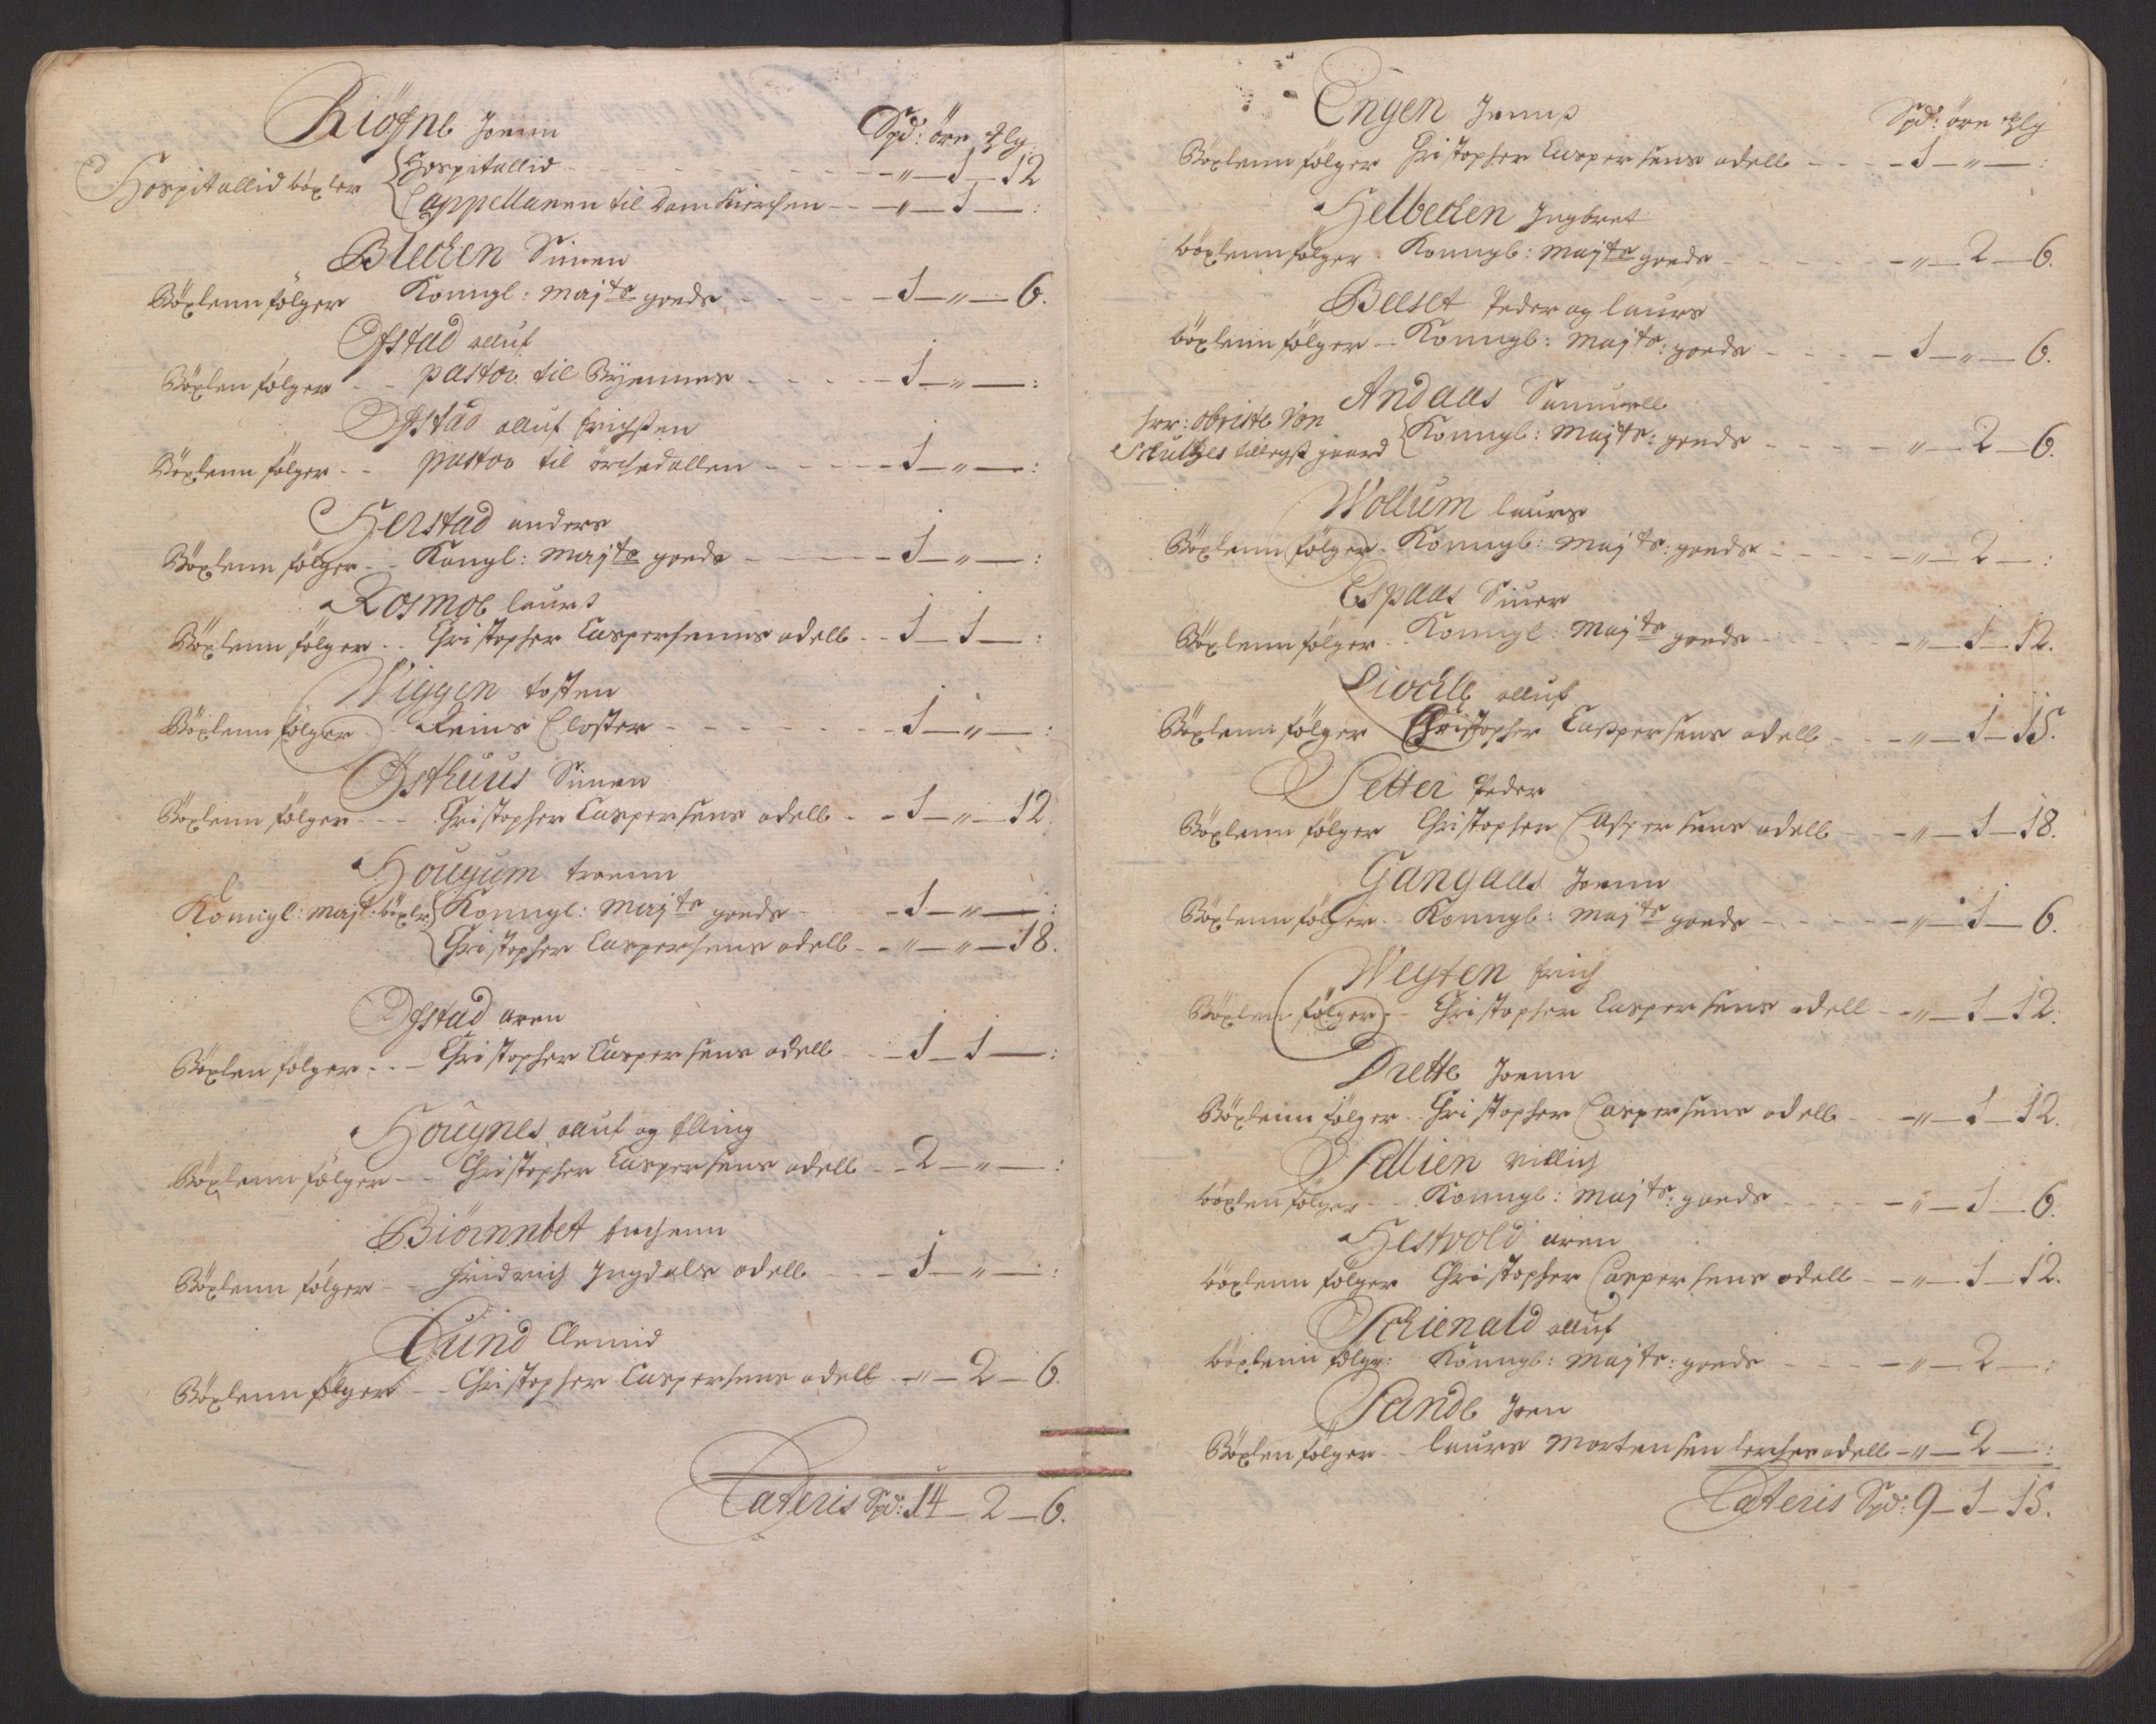 Riöfne Joenn
Spd: öre mlg:
Hospitallid böxler { Hospitallid - - - „ — 1 — 12
Cappellanen til Dom Kierchen - - „ — 1 — :
Blecken Simen
Böxlenn fölger Konngl: Majts goeds - - - 1 — „ — 6.
Ofstad olluf
Böxlen fölger - - pastor til Byennes - - - 1 — „ — :
Ofstad olluf Erichsen
Böxlenn fölger - - pastor til örchedallen - - - 1 — „ — :
Herstad anders
Böxlenn fölger - - Kongl: Majts goeds - - - 1 — „ — :
Rosmoe laurs
Böxlenn fölger - - Christopher Caspersenns odell - - 1 — 1 — :
Wiggen tosten
Böxlenn fölger - - Reins Closter - - - 1 — „ — :
Østhuus Simen
Böxlenn fölger - - - Christopher Caspersens odell - - 1 — „ — 12.
Hougum troenn
Konigl: Majt: böxler { Konngl: Majts goeds - 1 — „ — :
Christopher Caspersens odell - - „ — „ — 18.
Ofstad aren
Böxlen fölger - - - Christopher Caspersens odell - - 1 — 1 — :
Hougnes olluf og Elling
Böxlenn fölger - - Christopher Caspersens odell - - 2 — „ — :
Biörnnbet
Böxlenn fölger - - Fridrich Jngdals odell - - 1 — „ — :
Lund Arnnid
Böxlenn fölger - - Christopher Caspersens odell - „ — 2 — 6.
Lateris Spd: 14 — 2 — 6.
Engen Jennß
Spd: öre mlg
Böxlenn fölger Christopher Caspersens odell - - - 1 — „ — :
Helbecken Jngbret
böxlenn fölger - Konngl: Majts goeds - - - „ — 2 — 6.
Beeset Peder og laurs
böxlenn fölger - Konngl: Majts: goeds - - - 1 — „ — 6.
Andaas Samuell
Herr: Obriste Von
Schultzes tillegst gaard { Konngl: Majts: goeds - - - „ — 2 — 6.
Wollum laurs
Böxlenn fölger - Konngl: Majts: goeds - - - „ — 2 — :
Espaas Siuer
Böxlenn fölger - Konngl: Majts goeds - - - „ — 1 — 12.
olluf
Böxlenn fölger Christopher Caspersens odell - - - „ — 1 — 15.
Setter Peder
Böxlenn fölger Christopher Caspersens odell - - „ — 1 — 18.
Gangaas Joenn
Böxlenn fölger - Konngl: Majts goeds - - - „ — 1 — 6.
Weyten Erich
Böxlenn fölger - - Christopher Caspersens odell - - „ — 1 — 12.
Drette Joenn
Böxlenn fölger - Christopher Caspersens odell - - „ — 1 — 12.
Sellien Villich
böxlen fölger - - Konngl: Majts: goeds - - - „ — 1 — 6.
Hestvold aren
böxlenn fölger Christopher Caspersens odell - - „ — 1 — 12.
Schienald olluf
böxlenn fölger: Konngl: Majts: goeds - - - „ — 2 — :
Sande Joen
Böxlen fölger - - laurs Mortensen lerches odell - „ — 2 — :
Lateris Spd: 9 — 1 — 15.